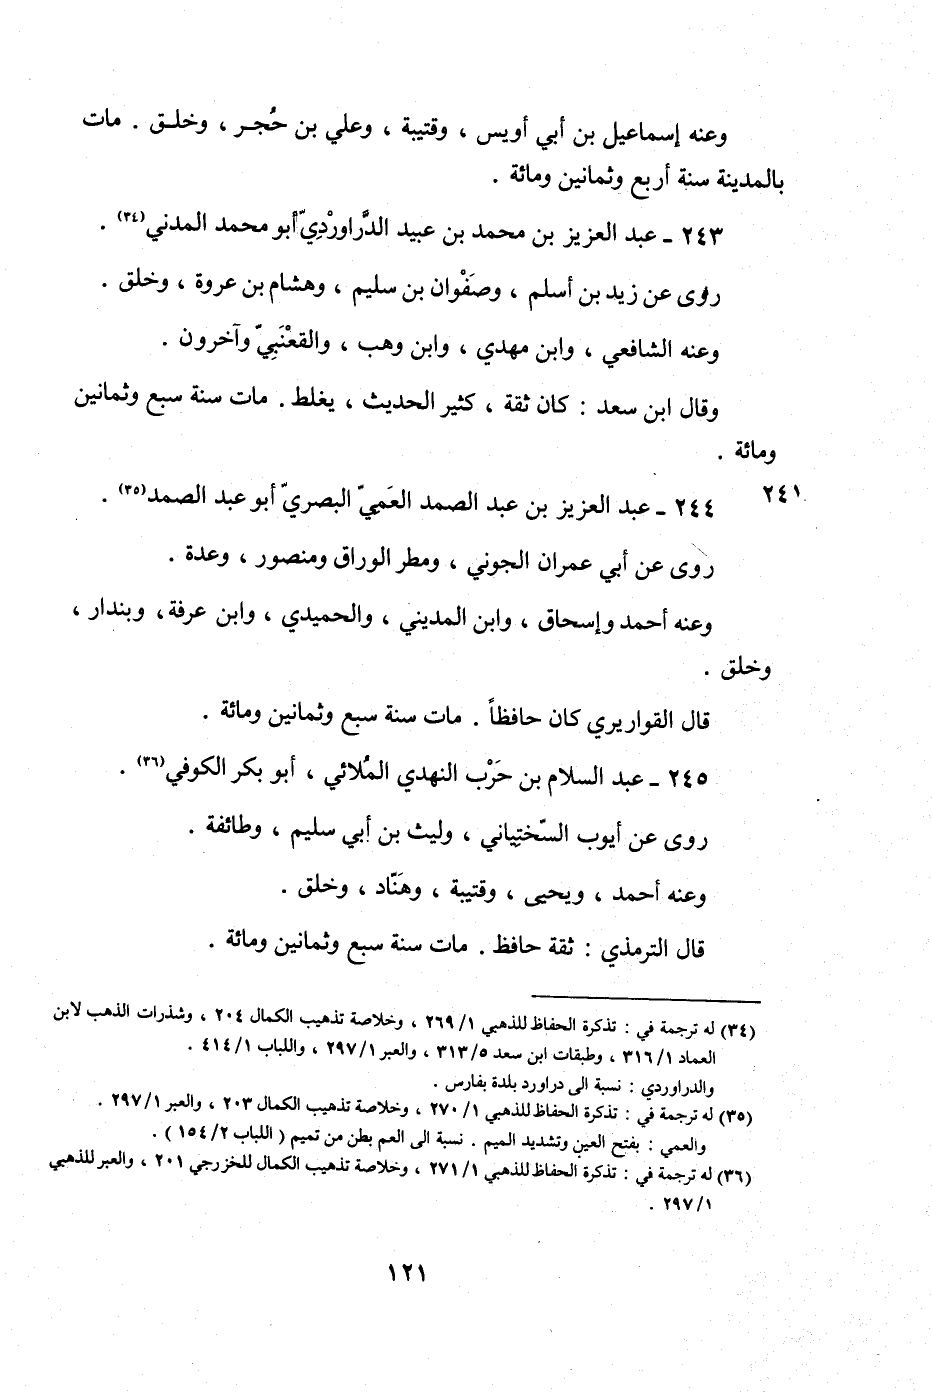 وعنه إسماعيل بن أبي أويس ، وقتيبة ، وعلي بن حُجـر ، وخلـق . مات
بالمدينة سنة أربع وثمانين ومائة .
٢٤٣ ـ عبد العزيز بن محمد بن عبيد الدَّراورْدِيّ أبو محمد المدني(٣٤) .
روى عن زيد بن أسلم ، وصَفْوان بن سليم ، وهشام بن عروة ، وخلق .
وعنه الشافعي ، وابن مهدي ، وابن وهب ، والقعْنَبِيّ وآخرون .
وقال ابن سعد : كان ثقة ، كثير الحديث ، يغلط . مات سنة سبع وثمانين
ومائة .
٢٤١
٢٤٤ ـ عبد العزيز بن عبد الصمد العَمِيّ البصريّ أبو عبد الصمد(٣٥) .
روى عن أبي عمران الجوني ، ومطر الوراق ومنصور ، وعدة .
وعنه أحمد وإسحاق ، وابن المديني ، والحميدي ، وابن عرفة، وبندار ،
وخلق .
قال القواريري كان حافظاً . مات سنة سبع وثمانين ومائة .
٢٤٥ ـ عبد السلام بن حَرْب النهدي المُلائي ، أبو بكر الكوفي(٣٦) .
روى عن أيوب السّختِياني ، وليث بن أبي سليم ، وطائفة .
وعنه أحمد ، ويحيى ، وقتيبة ، وهَنّاد ، وخلق .
قال الترمذي : ثقة حافظ . مات سنة سبع وثمانين ومائة .
(٣٤) له ترجمة في : تذكرة الحفاظ للذهبي ١/ ٢٦٩ ، وخلاصة تذهيب الكمال ٢٠٤ ، وشذرات الذهب لابن
العماد ١/ ٣١٦ ، وطبقات ابن سعد ٥/ ٣١٣ ، والعبر ١/ ٢٩٧ ، واللباب ١/ ٤١٤ .
والدراوردي : نسبة الى دراورد بلدة بفارس .
(٣٥) له ترجمة في : تذكرة الحفاظ للذهبي ١/ ٢٧٠ ، وخلاصة تذهيب الكمال ٢٠٣ ، والعبر ١/ ٢٩٧ .
والعمي : بفتح العين وتشديد الميم . نسبة الى العم بطن من تميم ( اللباب ٢/ ١٥٤ ) .
(٣٦) له ترجمة في : تذكرة الحفاظ للذهبي ١/ ٢٧١ ، وخلاصة تذهيب الكمال للخزرجي ٢٠١ ، والعبر للذهبي
١/ ٢٩٧ .
١٢١